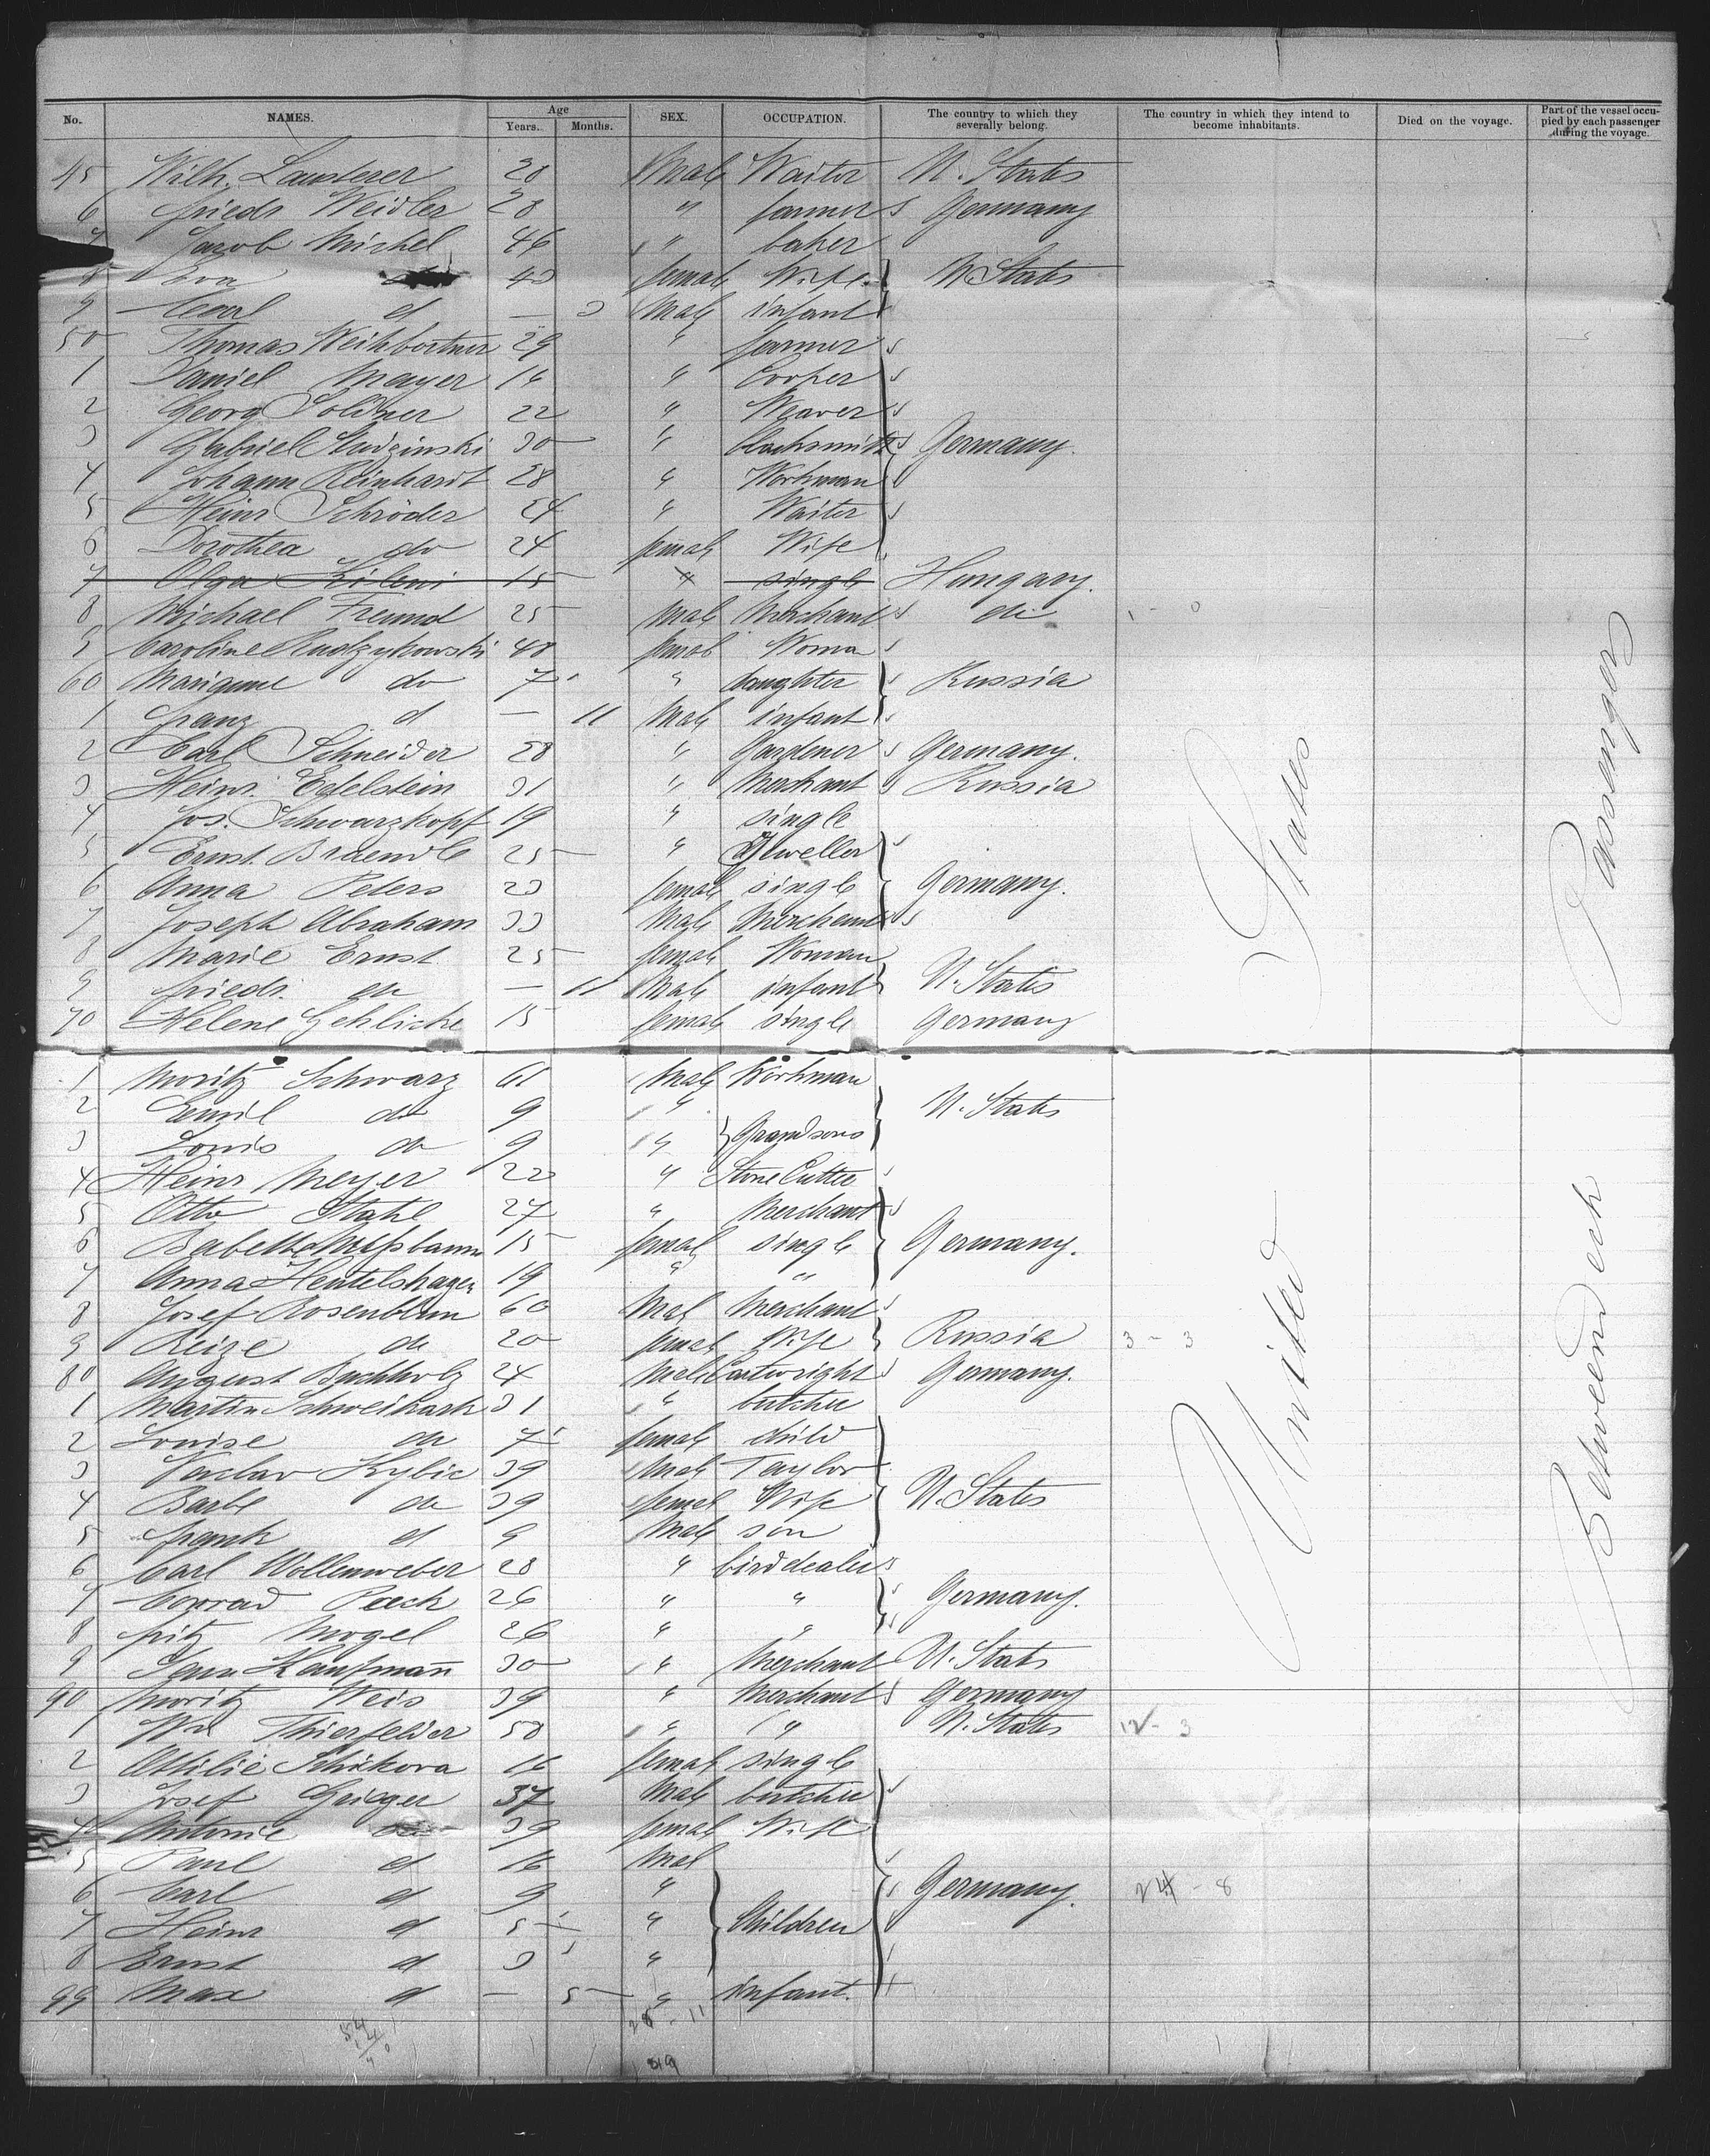 No. NAMES. Age Years. Months. SEX. OCCUPATION. The country to which they severally belong. The country in which they intend to become inhabitants. Died on the voyage. Part of the vessel occupied by each passenger during the voyage.
45 Wilh. Lauderer 28 Male Waiter U. States
6 Friedr Weidler 28 " farmer Germany
7 Jacob Michel 46 " baker
8 Eva 40 female Wife U. States
9 Carl d — 3 Male infant
50 Thomas Weihbortner 29 " farmer
1 Daniel Mayer 16 " Cooper
2 Georg Soldner 22 " Weaver
3 Gabriel Studzinski 30 " blacksmith Germany.
4 Johann Reinhardt 28 " Workman
5 Heinr Schröder 24 " Waiter
6 Dorothea do 24 female Wife
7 Olga Kileni 15 " single Hungary.
8 Michael Freund 25 Male Merchant do 1 - 0
9 Caroline Rudzykowski 48 female Woma
60 Marigune do 7 " daughter Russia
1 Franz d — 11 Male infant
2 Carl Schneider 28 " Gardener Germany.
3 Heinr. Edelstein 31 " Merchant Russia
4 Jos. Schwarzkopf 19 " single
5 Ernst Braendle 25 " Jeweller
6 Anna Peters 23 female single Germany.
7 Joseph Abraham 33 Male Merchant
8 Marie Ernst 25 female Woman
9 Friedr. do — 11 Male infant U. States
70 Helene Gehlicke 15 female single Germany
1 Moritz Schwarz 61 Male Workman
2 Emil do 9 " U. States
3 Louis do 9 " Grandsons
4 Heinr Meyer 22 " Stone Cutter
5 Otto Stahl 27 " Merchant
6 Babette Nussbaum 15 female single Germany.
7 Anna Hentelshagen 19 " "
8 Josef Rosenblum 60 Male Merchant
9 Reize do 20 female Wife Russia 3 - 3
80 August Buchholz 24 Male Cartwright Germany.
1 Martin Schweikart 31 " butcher
2 Louise do 7 female child
3 Vaclav Kybic 39 Male Taylor
4 Barbe do 39 female Wife U. States
5 Frank d 9 Male son
6 Carl Wollenweber 28 " birddealer
7 Conrad Peck 26 " " Germany.
8 Fritz Mogel 26 " "
9 Sam Kaufmann 30 " Merchant U. States
90 Moritz Weis 39 " Merchant Germany
1 Wm Thierfelder 58 " " U. States 12 - 3
2 Ottilie Schikora 16 female single
3 Josef Grieger 37 Male butcher
4 Antonie do 39 female Wife
5 Paul d 16 Mal
6 Carl d 9 " Germany. 24 - 8
7 Heinr d 5 " Children
8 Ernst d 3 "
99 Max d — 5 " infant.
28 - 11
United States
Betweendeck Passengers